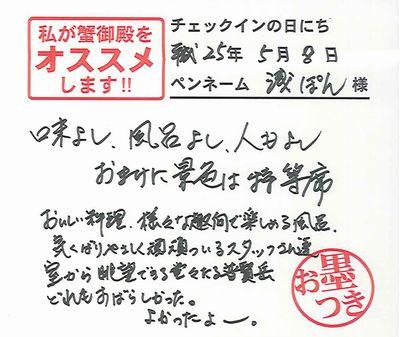 私が蟹御殿を
オススメ
します!!
チェックインの日にち
25年 5月 8日
ペンネーム ぽん 様
味よし、風呂よし、人もよし
おまけに景色は特等席
おいしい料理、様々な趣向で楽しめる風呂、
気くばりやさしく頑頑っているスタッフさん達
室から眺望できる堂々たる普賢岳
どれもすばらしかった。
よかったよー。
お墨つき